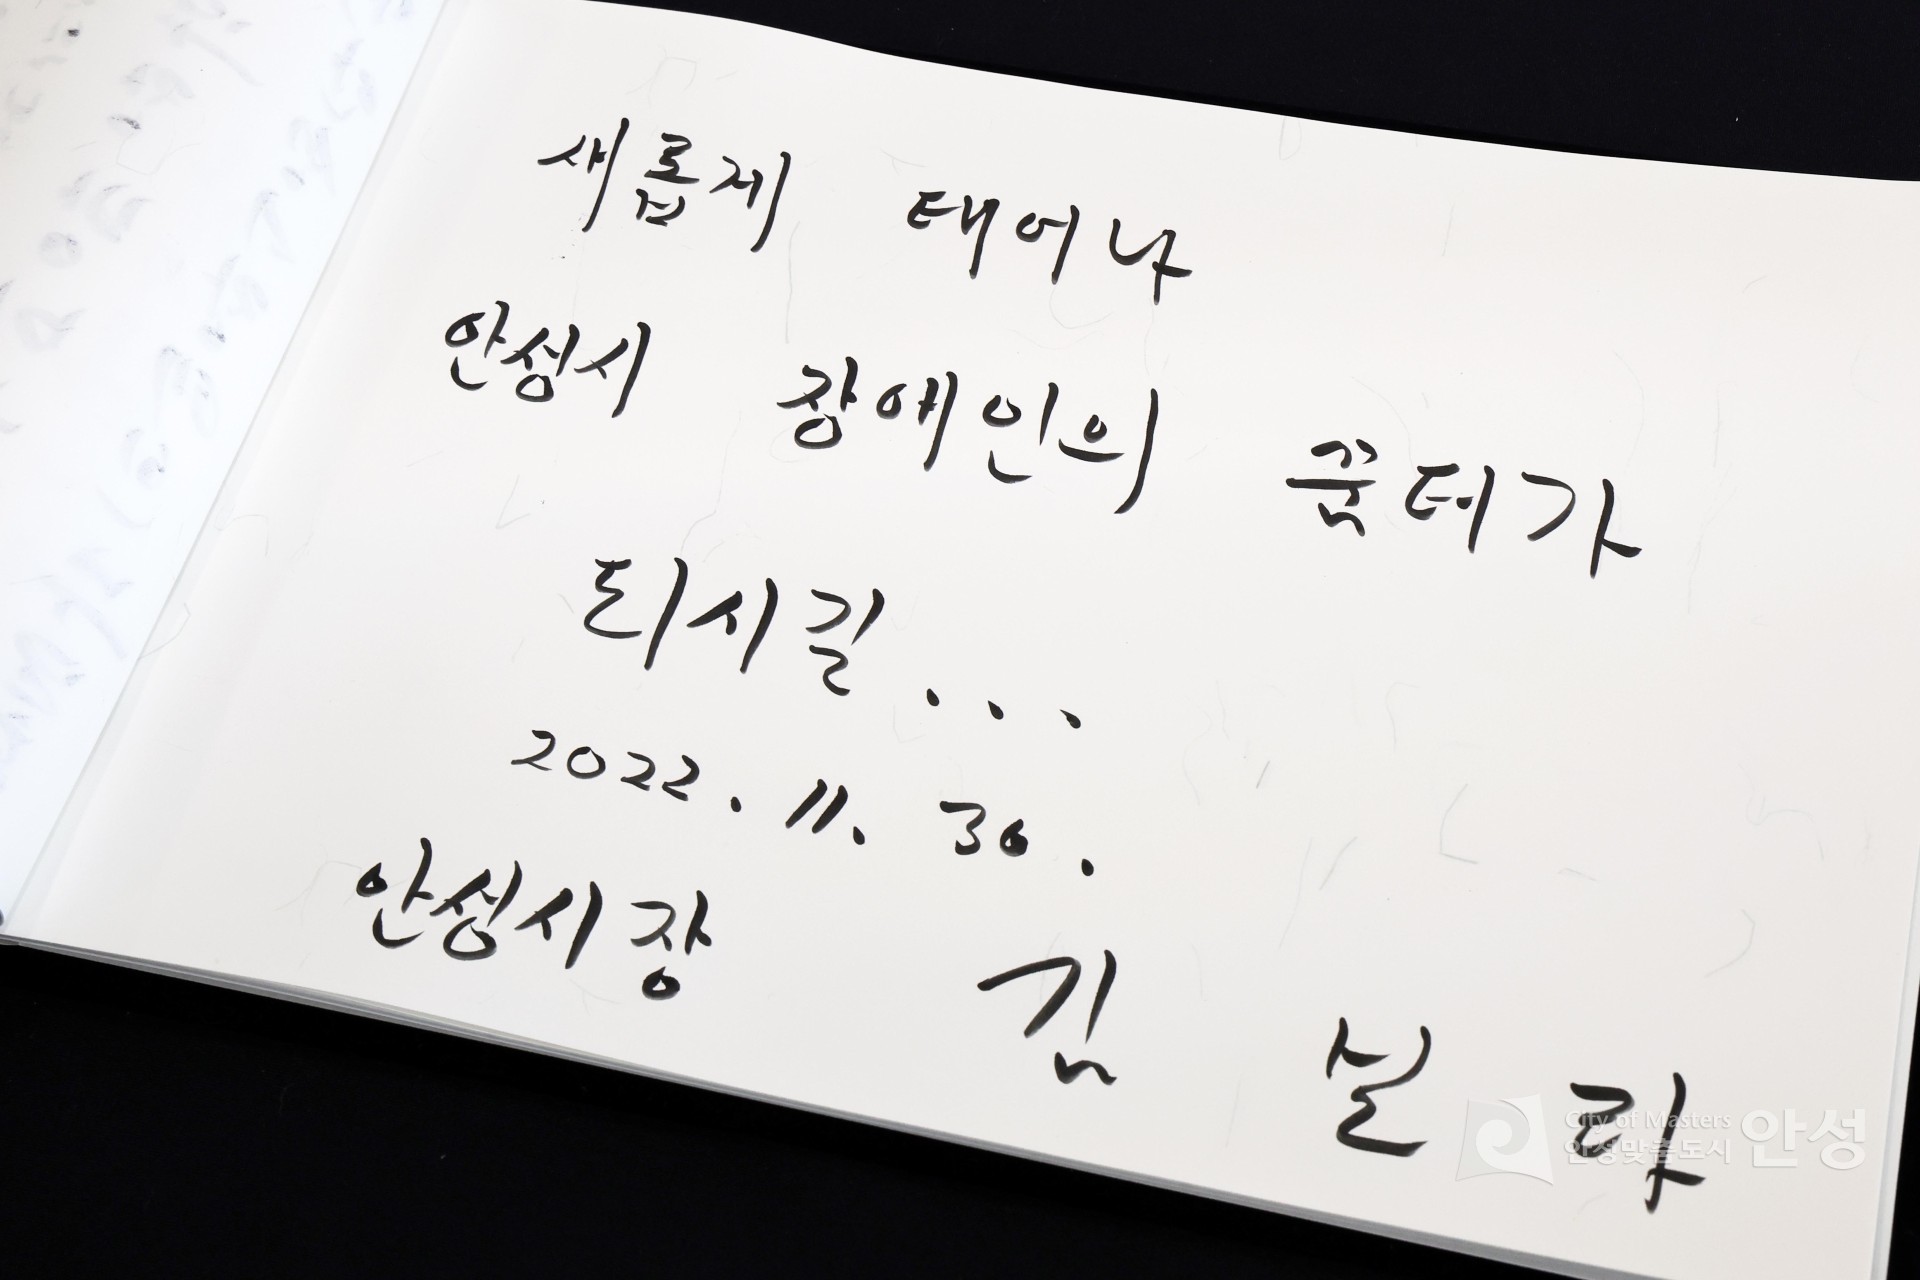 새롭게 태어나
안성시 장애인의 꿈터가
되시길...
2022. 11. 30.
안성시장 김 보라
City of Masters
안성맞춤도시 안성